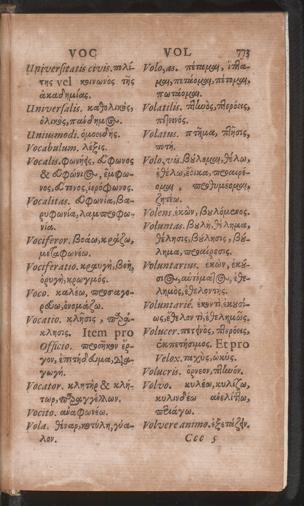 VOC VOL 773
Universitatis civis. πολί-
της vel κοινωνὸς τῆς
ἀκαδημίας.
Universalis. καθολικὸς,
ὁλικὸς, πάνδημος.
Uniusmodi. ὁμοειδής.
Vocabulum. λέξις.
Vocalis. φωνήεις, εὔφωνος
& εὐφώνιος, ἔμφω-
νος, ἱερόφωνος.
Vocalitas. εὐφωνία, βα-
ρυφωνία, λαμπροφω-
νία.
Vociferor. βοάω, κράζω,
Vociferatio. κραυγὴ, βοὴ,
Voco. καλέω, προσαγο-
ρεύω, ὀνομάζω.
Vocatio. κλῆσις, παρά-
κλησις. Item pro
Officio. προσῆκον ἔρ-
γον, ἐπιτήδευμα, δια-
γωγή.
Vocator. κλητὴρ & κλή-
τωρ, παραγγέλλων.
Vocito. ἀναφωνέω.
Vola. θέναρ, κοτύλη, γύα-
λον.
Volo, as. πέτομαι, ἵπτα-
μαι, πετάομαι, πέταμαι,
πωτάομαι.
Volatilis. πτηνὸς, πτερόεις,
Volatus. πτῆμα, πτῆσις,
Volo, vis. βούλομαι, θέλω,
ἐθέλω, προαιρέ-
ομαι, προθυμέομαι,
ζητέω.
Volens. ἑκὼν, βουλόμενος.
Voluntas. βουλὴ, θέλημα,
θέλησις, βούλησις, βού-
λημα, προαίρεσις.
Voluntarius. ἑκὼν, ἑκού-
σιος, ἐθε-
λημὸς, ἐθελοντής.
Voluntariè. ἑκοντὶ, ἑκουσί-
ως,
Volucer. πετεινὸς, πτερόεις,
Et pro
Velox. ταχὺς, ὠκύς.
Volucris. ὄρνεον, πτηνόν.
Volvo. κυλέω, κυλίζω,
κυλινδέω,
Volvere animo. ἐξετάζειν.
Ccc 5